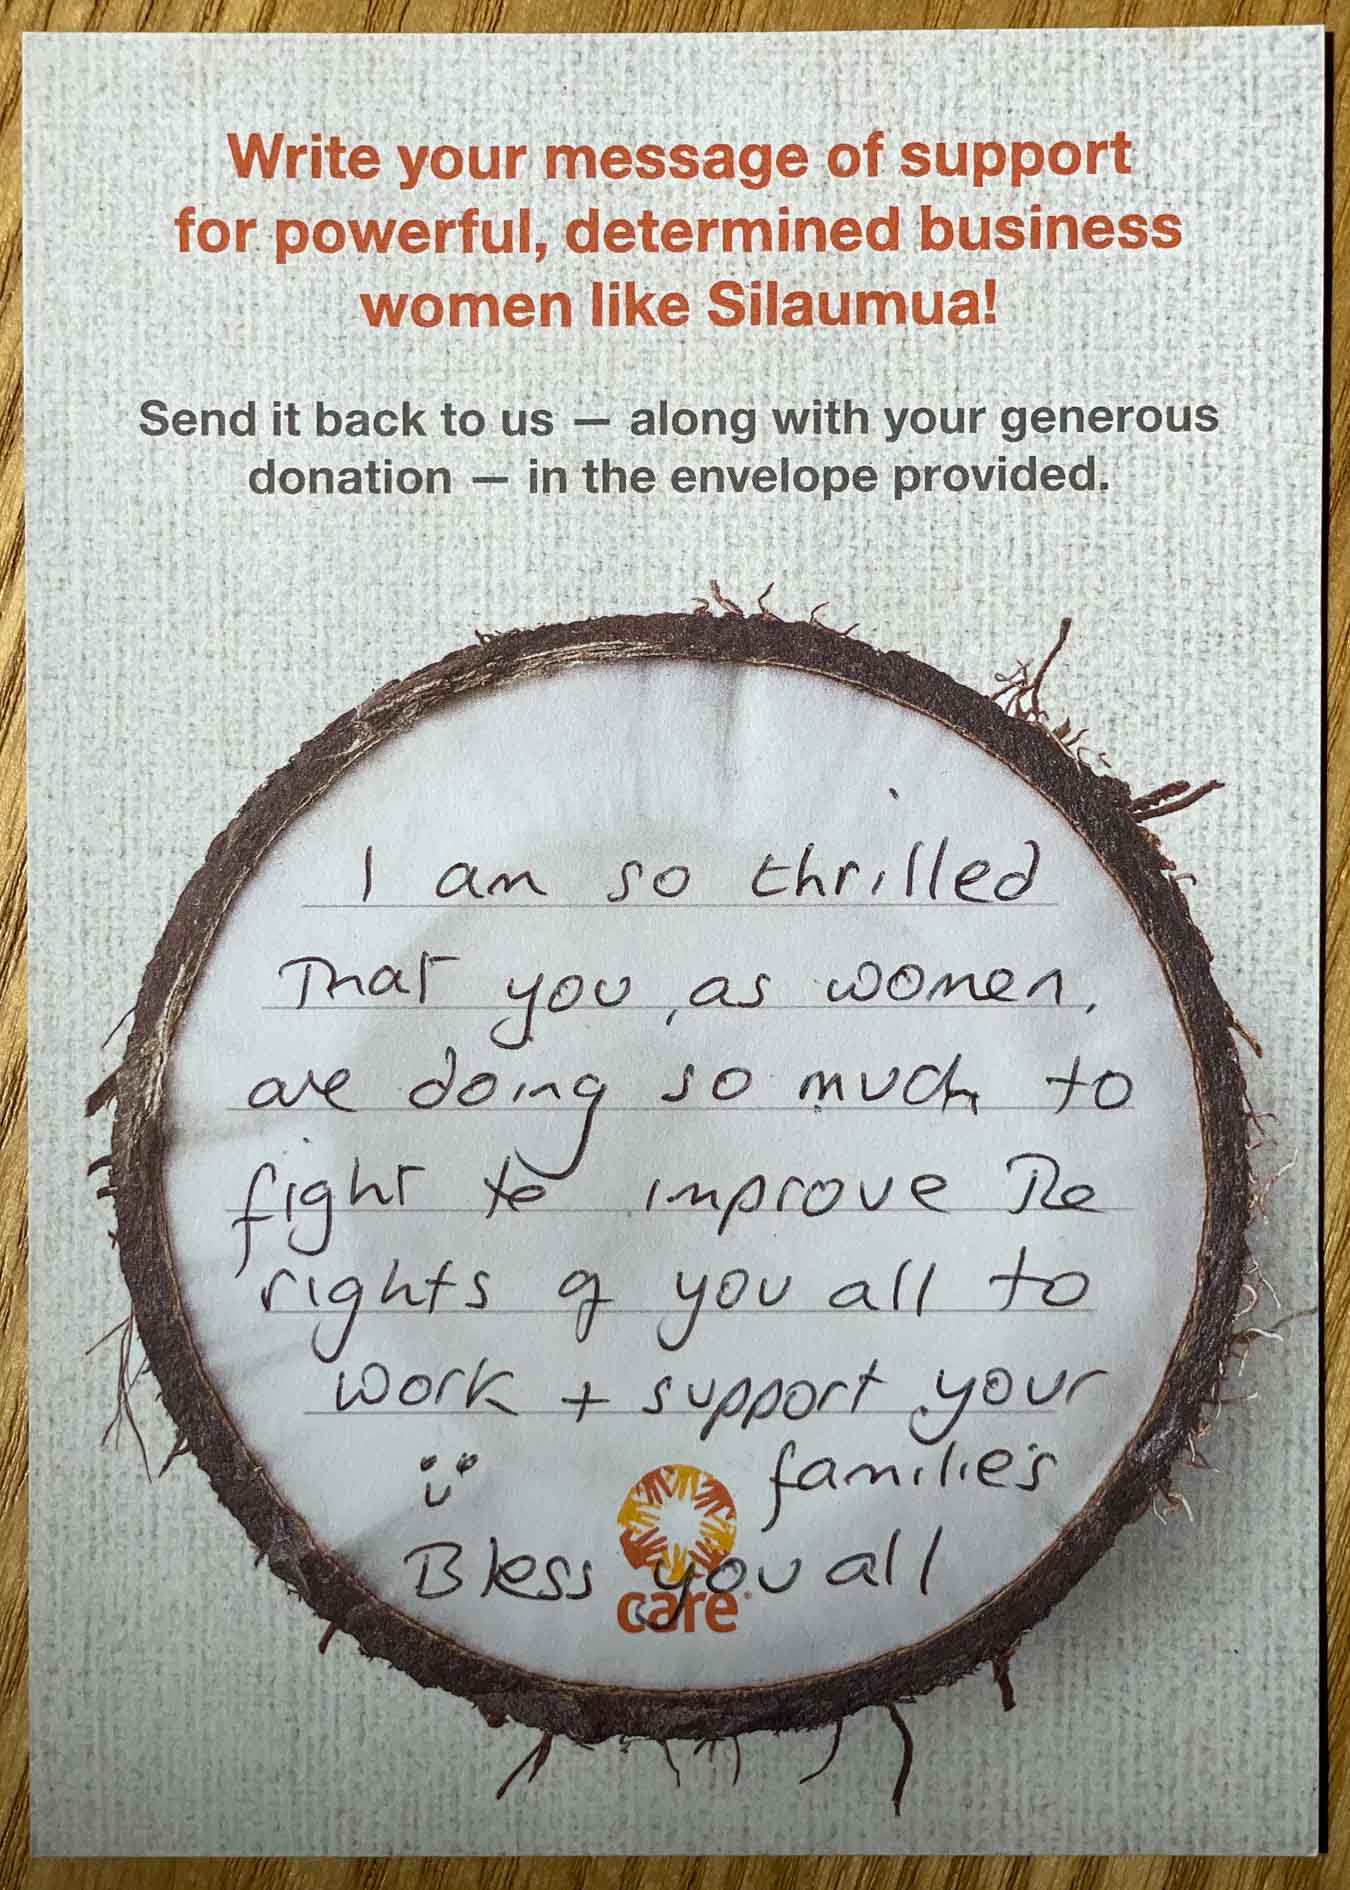 Write your message of support
for powerful, determined business
women like Silaumua!
Send it back to us — along with your generous
donation — in the envelope provided.
I am so thrilled
That you, as women,
are doing so much to
fight to improve the
rights of you all to
work + support your
families
Bless you all
care